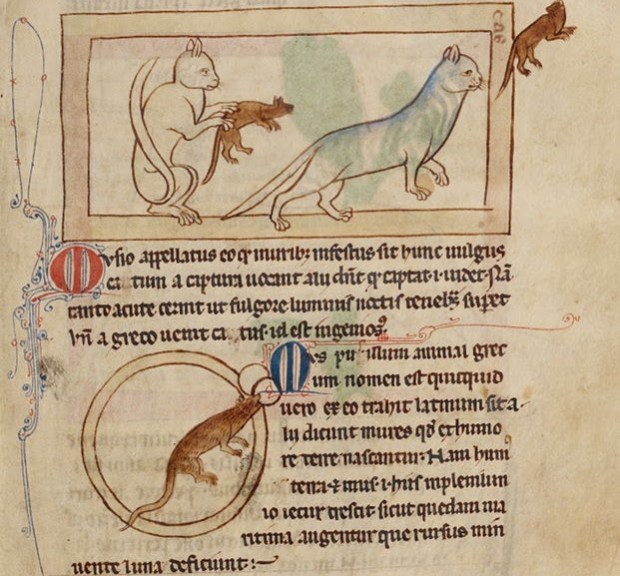 cat
Musio appellatus eo qr muribz infestus sit hunc uulgus
catum a captura uocant alii dnt qr captat .i. uidet. Na
tanto acute cernit ut fulgore luminis noctis tenebs supet
hn a greco uenit catus. id est ingeniosus
Mus pusillum animal grec
um nomen est quicquid
uero ex eo trahit latinum fit a
lii dicunt mures qd ex humo
re terre nascantur. Nam humus
terra & mus .i. his in plenilun
io iecur crescit sicut quedam ma
ritima augentur que rursus min
uente luna deficiunt :~